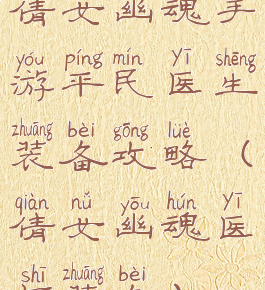 倩女幽魂手
yóu píng mín yī shēng
游平民医生
zhuāng bèi gōng lüè
装备攻略（
qiàn nǚ yōu hún yī
倩女幽魂医
shī zhuāng bèi